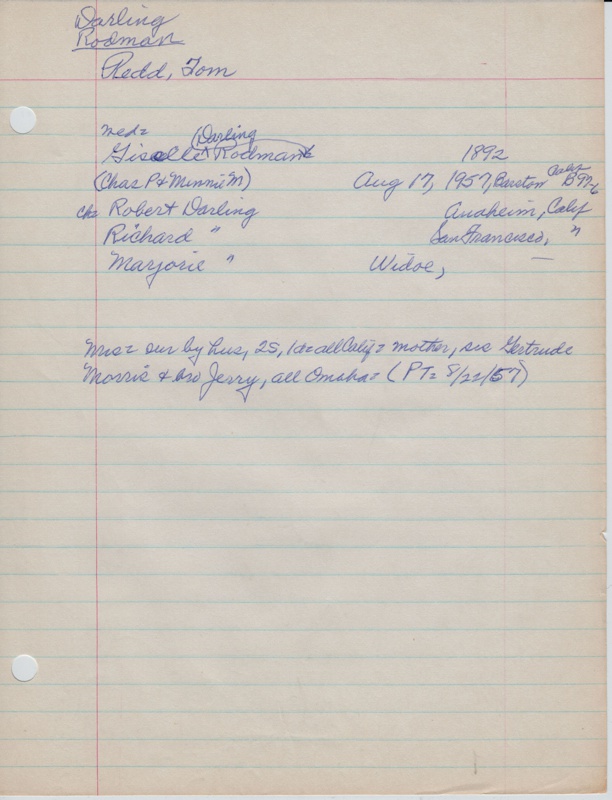 Darling
Rodman
Redd, Tom
med=
(Darling
Giselle Rodman 1892
(Chas P & Minnie M) Aug 17, 1957, Barston Calif B97-6
chs Robert Darling Anaheim, Calif
Richard " San Francisco, "
Marjorie " Widoe, —
Mrs= sur by hus, 2s, 1d= all Calif= mother, sis Gertrude
Morris & bro Jerry, all Omaha= (PT= 8/22/57)